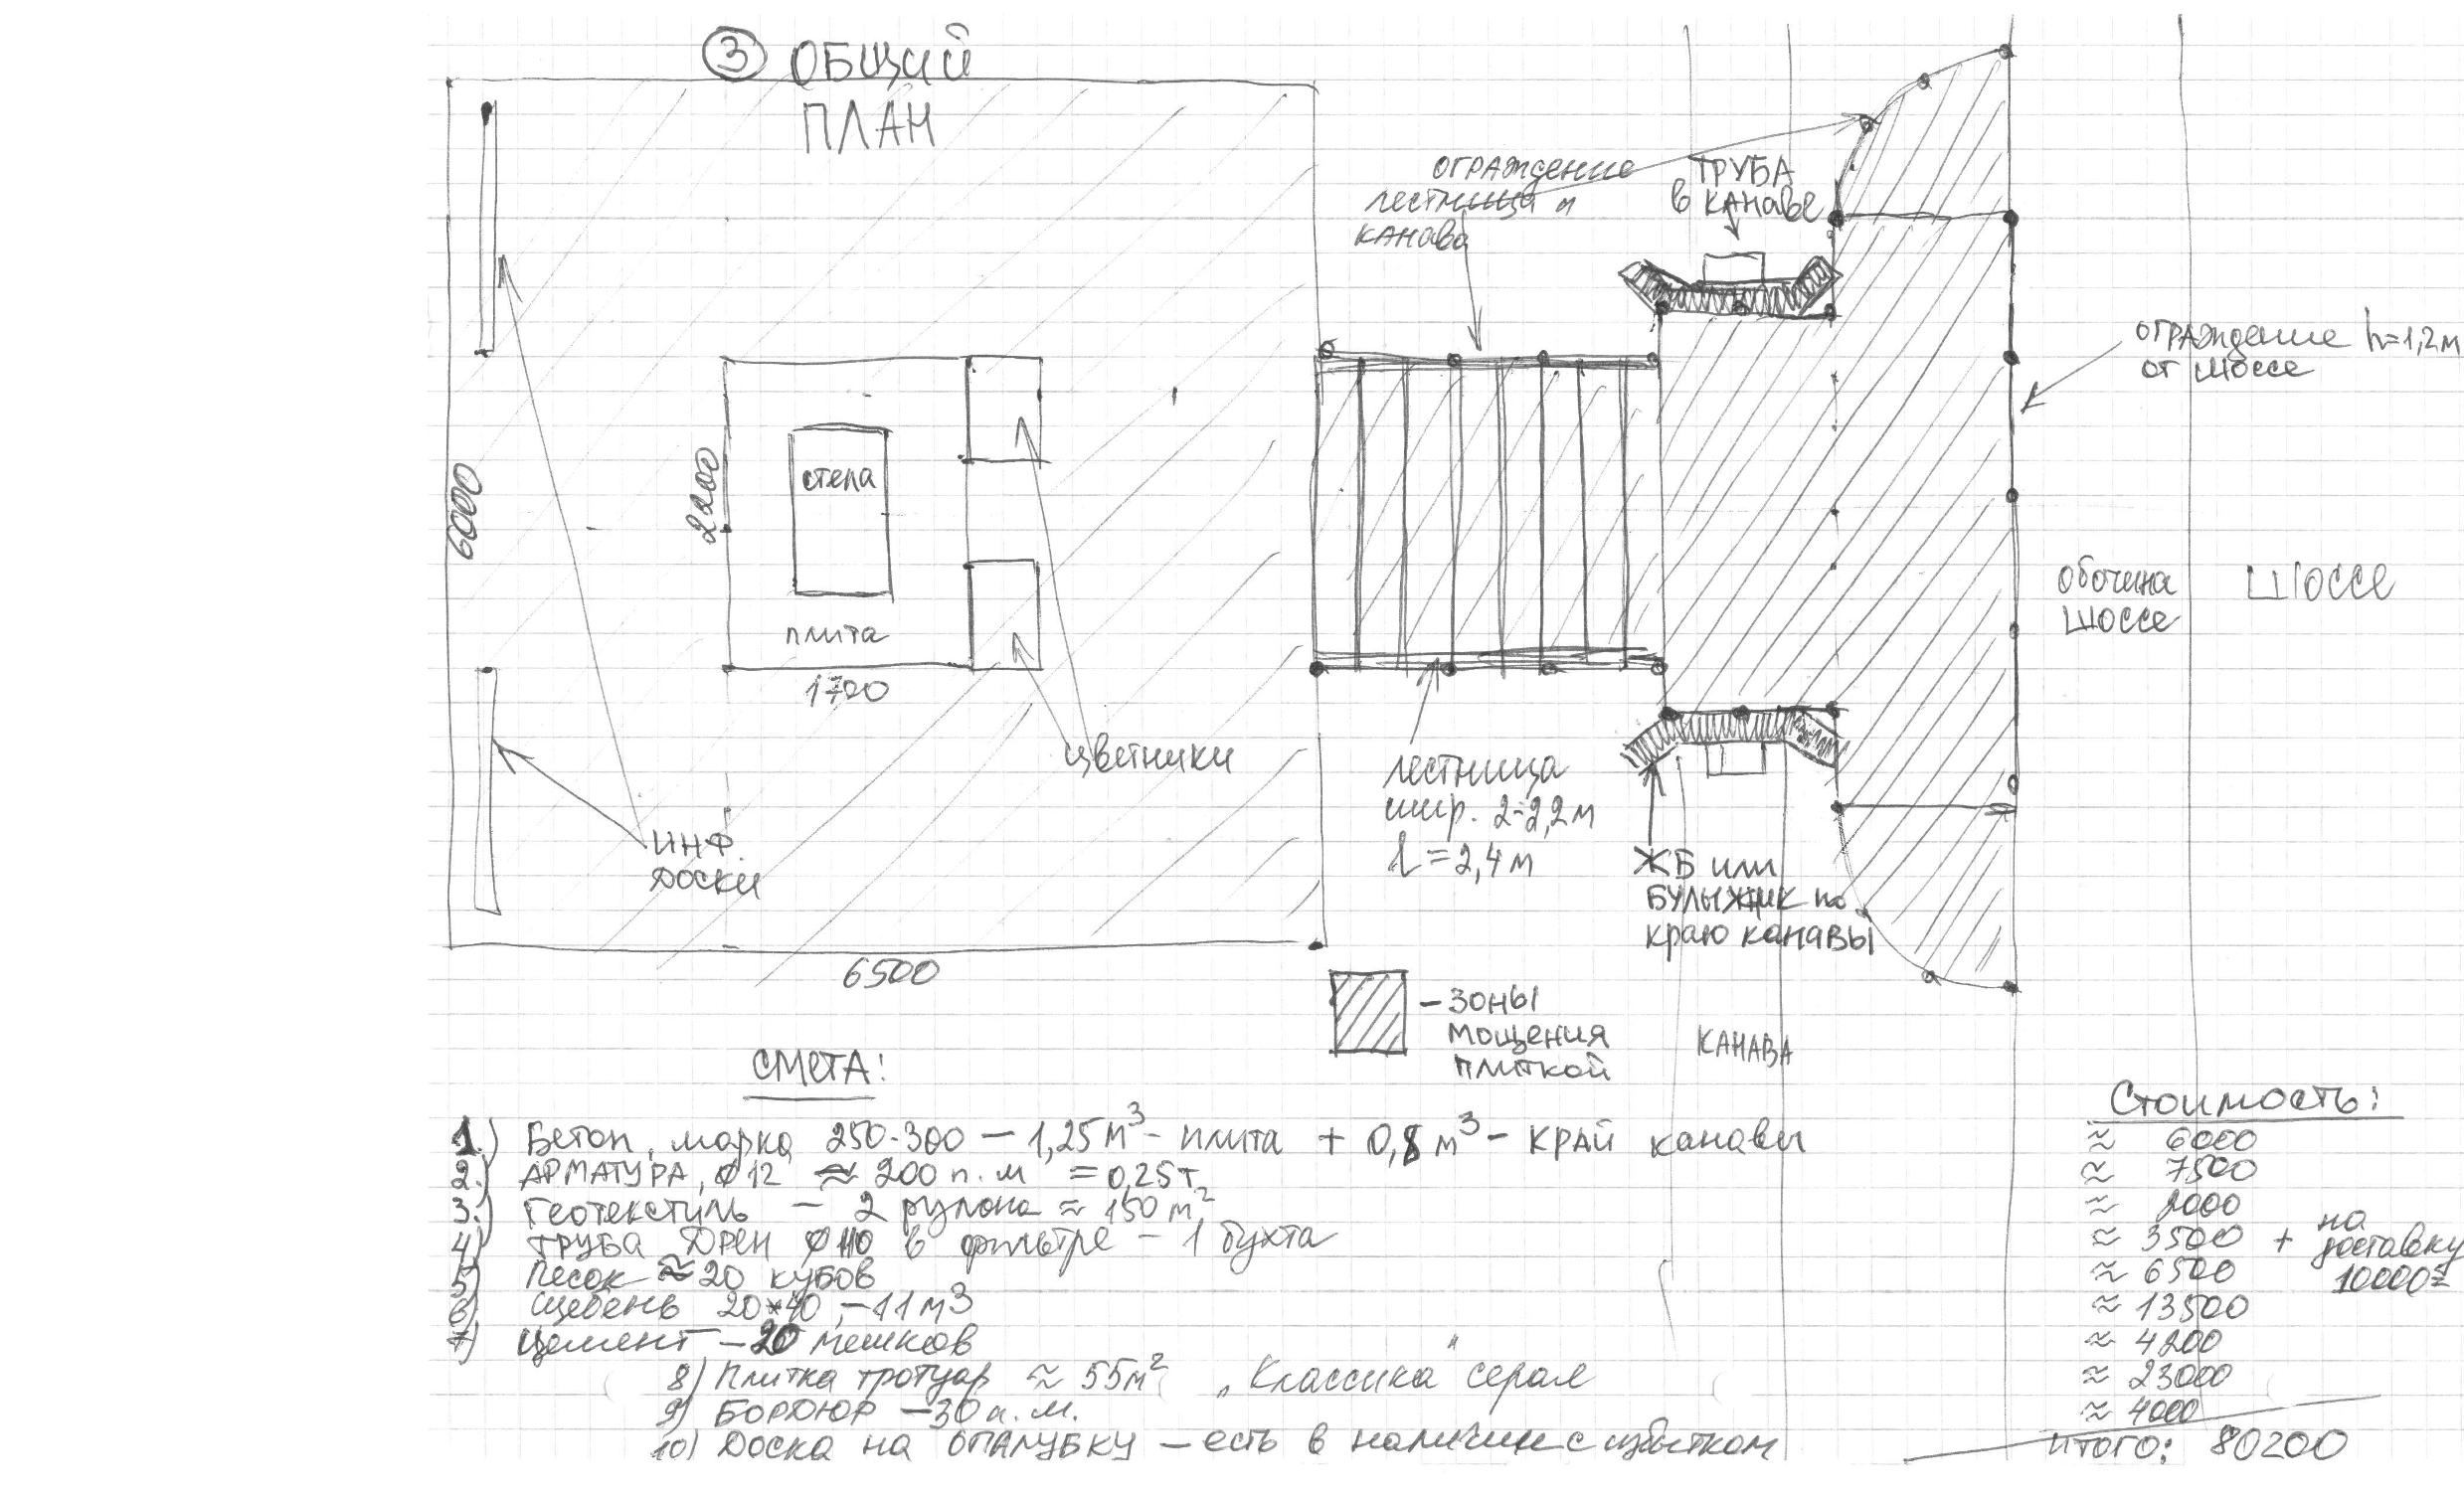 3 ОБЩИЙ
ПЛАН
ограждение
лестница и
канава
ТРУБА
в КАНАВЕ
ограждение h=1,2м
от шоссе
6000
2200
стела
плита
1700
обочина
шоссе
шоссе
цветники
лестница
шир. 2-2,2м
l=2,4м
ИНФ.
доски
ЖБ или
БУЛЫЖНИК по
краю канавы
6500
- зоны
мощения
плиткой
КАНАВА
СМЕТА:
Стоимость:
1.) Бетон, марка 250-300 — 1,25м³ - плита + 0,8м³ - край канавы
≈ 6000
2.) АРМАТУРА, ∅12 ≈ 200 п.м = 0,25т
≈ 7500
3.) Геотекстиль — 2 рулона ≈ 150 м²
≈ 2000
4) ТРУБА ДРЕН ∅110 в фильтре - 1 бухта
≈ 3500 + на доставку
5) Песок ≈ 20 кубов
≈ 6500 10000=
6) щебень 20*40, - 11м3
≈ 13500
7) Цемент - 20 мешков
≈ 4200
8) Плитка тротуар ≈ 55м² „Классика" серая
≈ 23000
9) БОРДЮР - 30 п.м.
≈ 4000
10) Доска на ОПАЛУБКУ - есть в наличии с избытком
итого: 80200